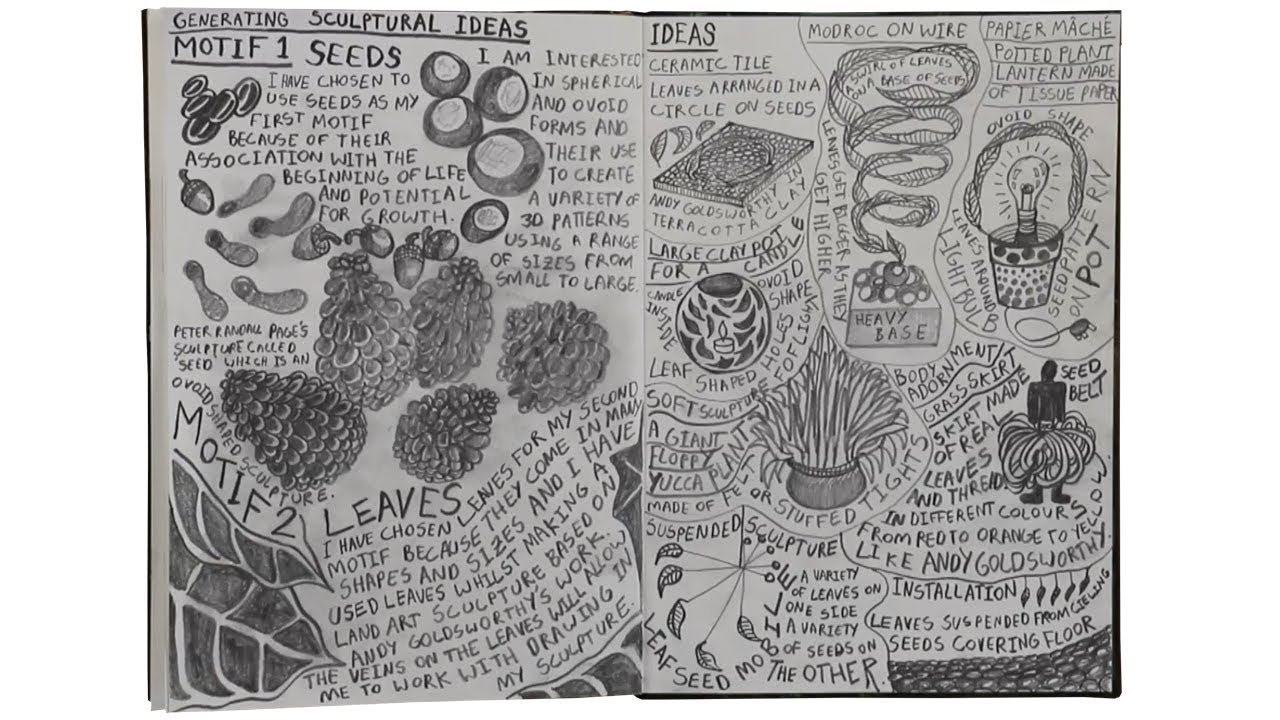 GENERATING SCULPTURAL IDEAS
MOTIF 1 SEEDS
I HAVE CHOSEN TO
USE SEEDS AS MY
FIRST MOTIF
BECAUSE OF THEIR
ASSOCIATION WITH THE
BEGINNING OF LIFE
AND POTENTIAL
FOR GROWTH.
I AM INTERESTED
IN SPHERICAL
AND OVOID
FORMS AND
THEIR USE
TO CREATE
A VARIETY OF
3D PATTERNS
USING A RANGE
OF SIZES FROM
SMALL TO LARGE.
PETER RANDALL PAGE'S
SCULPTURE CALLED
'SEED' WHICH IS AN
OVOID SHAPED SCULPTURE.
MOTIF 2
LEAVES
I HAVE CHOSEN LEAVES FOR MY SECOND
MOTIF BECAUSE THEY COME IN MANY
SHAPES AND SIZES AND I HAVE
USED LEAVES WHILST MAKING A
LAND ART SCULPTURE BASED ON
ANDY GOLDSWORTHY'S WORK.
THE VEINS ON THE LEAVES WILL ALLOW
ME TO WORK WITH DRAWING IN
MY SCULPTURE.
IDEAS
CERAMIC TILE
LEAVES ARRANGED IN A
CIRCLE ON SEEDS
ANDY GOLDSWORTHY IN
TERRACOTTA CLAY
MODROC ON WIRE
A SWIRL OF LEAVES
ON A BASE OF SEEDS
LEAVES GET BIGGER AS THEY
GET HIGHER
HEAVY
BASE
PAPIER MÂCHÉ
POTTED PLANT
LANTERN MADE
OF TISSUE PAPER
OVOID SHAPE
LEAVES AROUND
LIGHT BULB
SEED PATTERN
ON POT
LARGE CLAY POT
FOR A CANDLE
CANDLE
INSIDE
OVOID
SHAPE
LEAF SHAPED HOLES
FOR LIGHT
SOFT SCULPTURE
A GIANT
FLOPPY
YUCCA PLANT
MADE OF FELT OR STUFFED TIGHTS
BODY
ADORNMENT/
GRASS SKIRT
SEED
BELT
SKIRT MADE
OF REAL
LEAVES
AND THREAD
IN DIFFERENT COLOURS
FROM RED TO ORANGE TO YELLOW.
LIKE ANDY GOLDSWORTHY.
SUSPENDED SCULPTURE
LEAF SEED MOBILE
A VARIETY
OF LEAVES ON
ONE SIDE
A VARIETY
OF SEEDS ON
THE OTHER.
INSTALLATION
LEAVES SUSPENDED FROM CIELING
SEEDS COVERING FLOOR